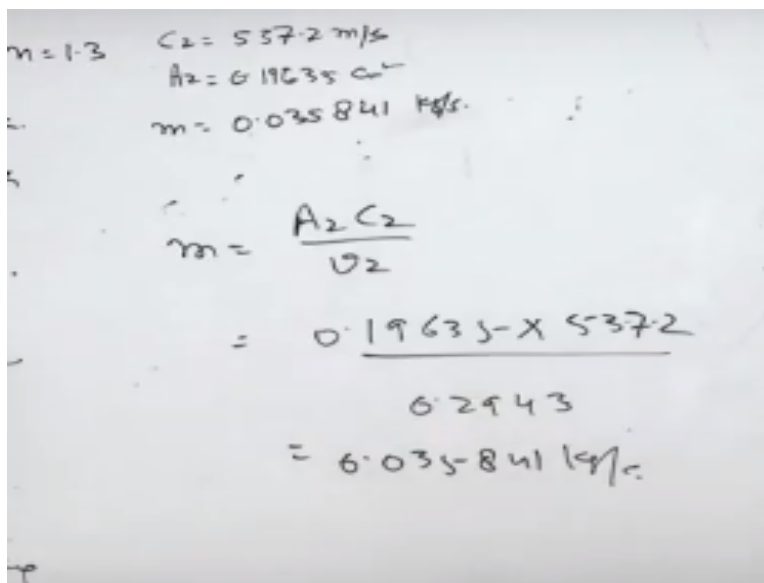 n = 1.3 C2 = 537.2 m/s
A2 = 0.19635 cm²
m = 0.035841 kg/s.
m = A2 C2
υ2
= 0.19635 x 537.2
0.2943
= 0.035841 kg/s.